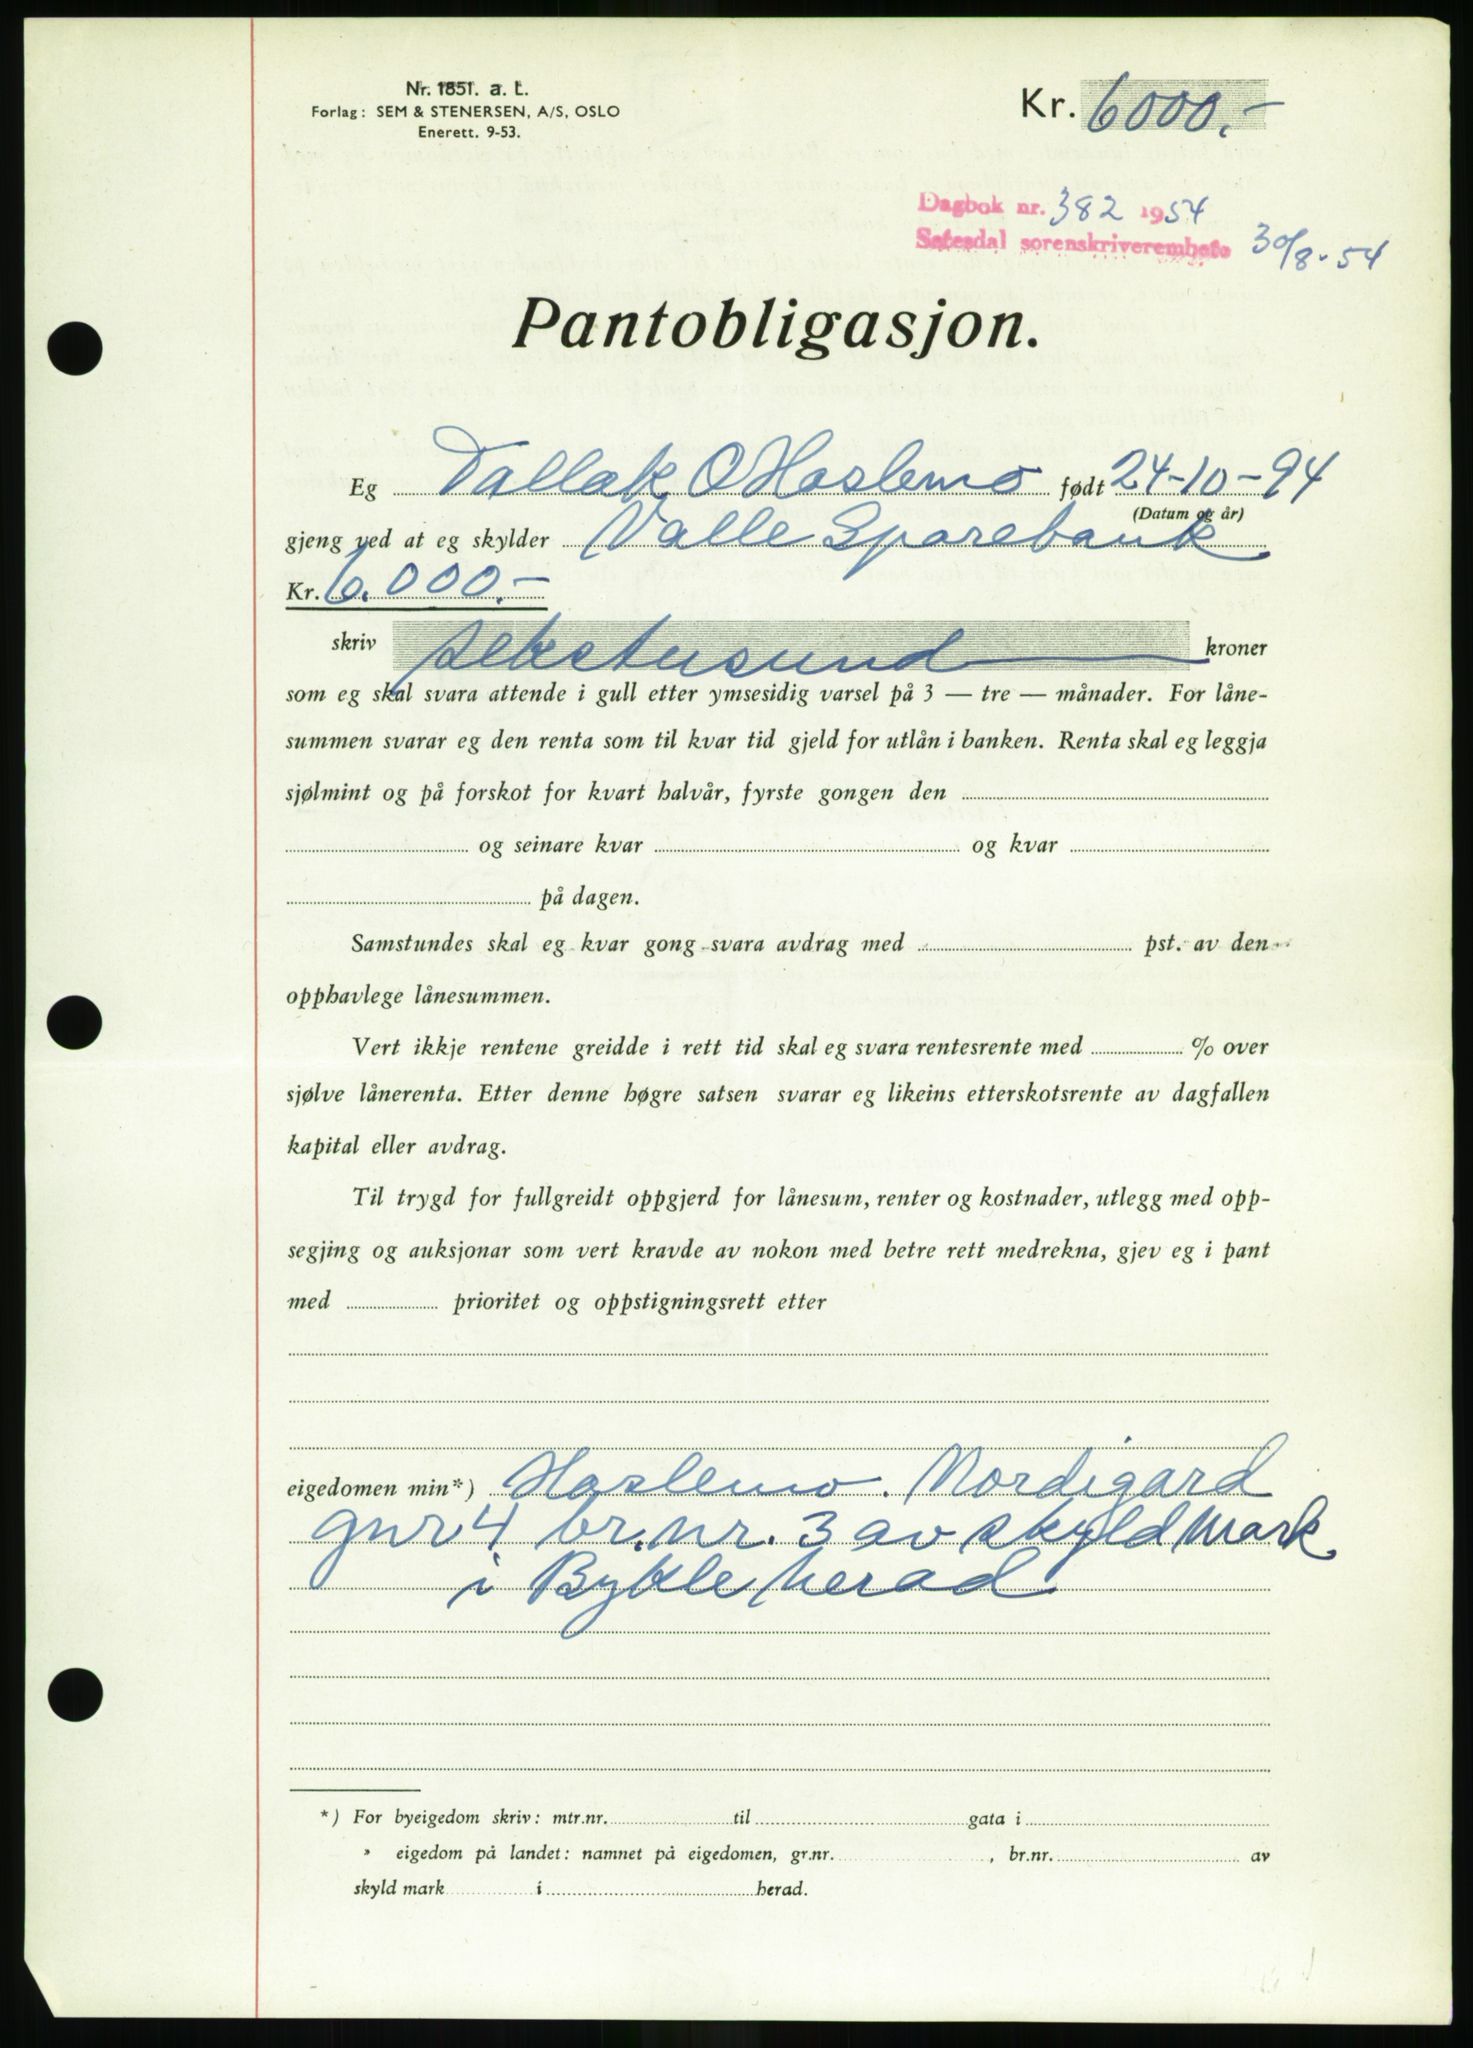 Nr. 1851. a. t.
Forlag: SEM & STENERSEN, A/S, OSLO
Enerett. 9-53.
Kr. 6000.-
Dagbok nr. 382 1954
Setesdal sorenskriverembete 30/8-54
Pantobligasjon.
Eg Tallak O Hoslemo født 24-10-94
(Datum og år)
gjeng ved at eg skylder Valle Sparebank
Kr. 6.000.-
skriv sekstusund kroner
som eg skal svara attende i gull etter ymsesidig varsel på 3 — tre — månader. For låne-
summen svarar eg den renta som til kvar tid gjeld for utlån i banken. Renta skal eg leggja
sjølmint og på forskot for kvart halvår, fyrste gongen den
og seinare kvar og kvar
på dagen.
Samstundes skal eg kvar gong svara avdrag med pst. av den
opphavlege lånesummen.
Vert ikkje rentene greidde i rett tid skal eg svara rentesrente med % over
sjølve lånerenta. Etter denne høgre satsen svarar eg likeins etterskotsrente av dagfallen
kapital eller avdrag.
Til trygd for fullgreidt oppgjerd for lånesum, renter og kostnader, utlegg med opp-
segjing og auksjonar som vert kravde av nokon med betre rett medrekna, gjev eg i pant
med prioritet og oppstigningsrett etter
eigedomen min*) Hoslemo. Nordigard
gnr 4 br.nr. 3 av skyld mark
i Bykle herad
*) For byeigedom skriv: mtr.nr. til gata i
» eigedom på landet: namnet på eigedomen, gr.nr. , br.nr. av
skyld mark i herad.